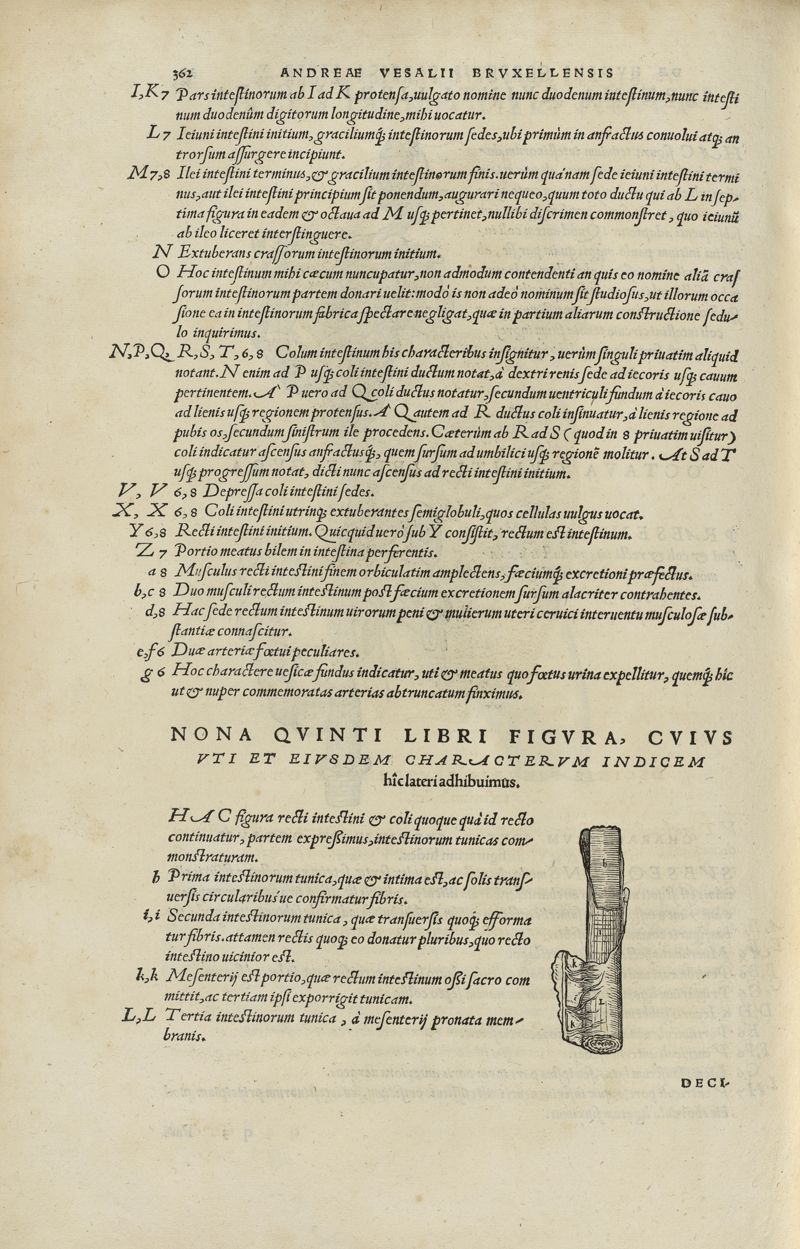 362 ANDREAE VESALII BRVXELLENSIS
I,K 7 Pars intestinorum ab I ad K protensa, uulgato nomine nunc duodenum intestinum, nunc intesti
num duodenûm digitorum longitudine, mihi uocatur.
L 7 Ieiuni intestini initium, graciliumq́; intestinorum sedes, ubi primùm in anfractus conuolui atq; an
trorsum assurgere incipiunt.
M 7,8 Ilei intestini terminus, & gracilium intestinorum finis. uerùm quánam sede ieiuni intestini termi
nus, aut ilei intestini principium sit ponendum, augurari nequeo, quum toto ductu qui ab L in sep-
tima figura in eadem & octaua ad M usq; pertinet, nullibi discrimen commonstret, quo ieiunū
ab ileo liceret interstinguere.
N Extuberans crassorum intestinorum initium.
O Hoc intestinum mihi cæcum nuncupatur, non admodum contendenti an quis eo nomine aliā cras
sorum intestinorum partem donari uelit: modò is non adeò nominum sit studiosus, ut illorum occa
sione ea in intestinorum fabrica spectare negligat, quæ in partium aliarum constructione sedu-
lo inquirimus.
N,P,Q, R, S, T, 6,8 Colum intestinum his characteribus insignitur, uerùm singuli priuatim aliquid
notant. N enim ad P usq; coli intestini ductum notat, à dextri renis sede ad iecoris usq; cauum
pertinentem. A' P uero ad Q coli ductus notatur, secundum uentriculi fundum à iecoris cauo
ad lienis usq; regionem protensus. A' Q autem ad R ductus coli insinuatur, à lienis regione ad
pubis os, secundum sinistrum ile procedens. Cæterùm ab R ad S (quod in 8 priuatim uisitur)
coli indicatur ascensus anfractusq́;, quem sursum ad umbilici usq; regionē molitur. At S ad T
usq; progressum notat, dicti nunc ascensus ad recti intestini initium.
V, V 6,8 Depressa coli intestini sedes.
X, X 6,8 Coli intestini utrinq; extuberantes semiglobuli, quos cellulas uulgus uocat.
Y 6,8 Recti intestini initium. Quicquid uerò sub Y consistit, rectum est intestinum.
Z 7 Portio meatus bilem in intestina perferentis.
a 8 Musculus recti intestini finem orbiculatim amplectens, fæciumq́; excretioni præfectus.
b,c 8 Duo musculi rectum intestinum post fæcium excretionem sursum alacriter contrahentes.
d,8 Hac sede rectum intestinum uirorum peni & mulierum uteri ceruici interuentu musculosæ sub-
stantiæ connascitur.
e,f 6 Duæ arteriæ fœtui peculiares.
g 6 Hoc charactere uesicæ fundus indicatur, uti & meatus quo fœtus urina expellitur, quemq́; hîc
ut & nuper commemoratas arterias abtruncatum finximus.
NONA QVINTI LIBRI FIGVRA, CVIVS
VTI ET EIVSDEM CHARACTERVM INDICEM
hîc lateri adhibuimus.
HAC figura recti intestini & coli quoque quà id recto
continuatur, partem expressimus, intestinorum tunicas com-
monstraturam.
h Prima intestinorum tunica, quæ & intima est, ac solis trans-
uersis circularibus'ue confirmatur fibris.
i,i Secunda intestinorum tunica, quæ transuersis quoq; efforma
tur fibris. attamen rectis quoq; eo donatur pluribus, quo recto
intestino uicinior est.
k,k Mesenterij est portio, quæ rectum intestinum ossi sacro com
mittit, ac tertiam ipsi exporrigit tunicam.
L,L Tertia intestinorum tunica, à mesenterij pronata mem-
branis.
h
k
L
k
DECI-